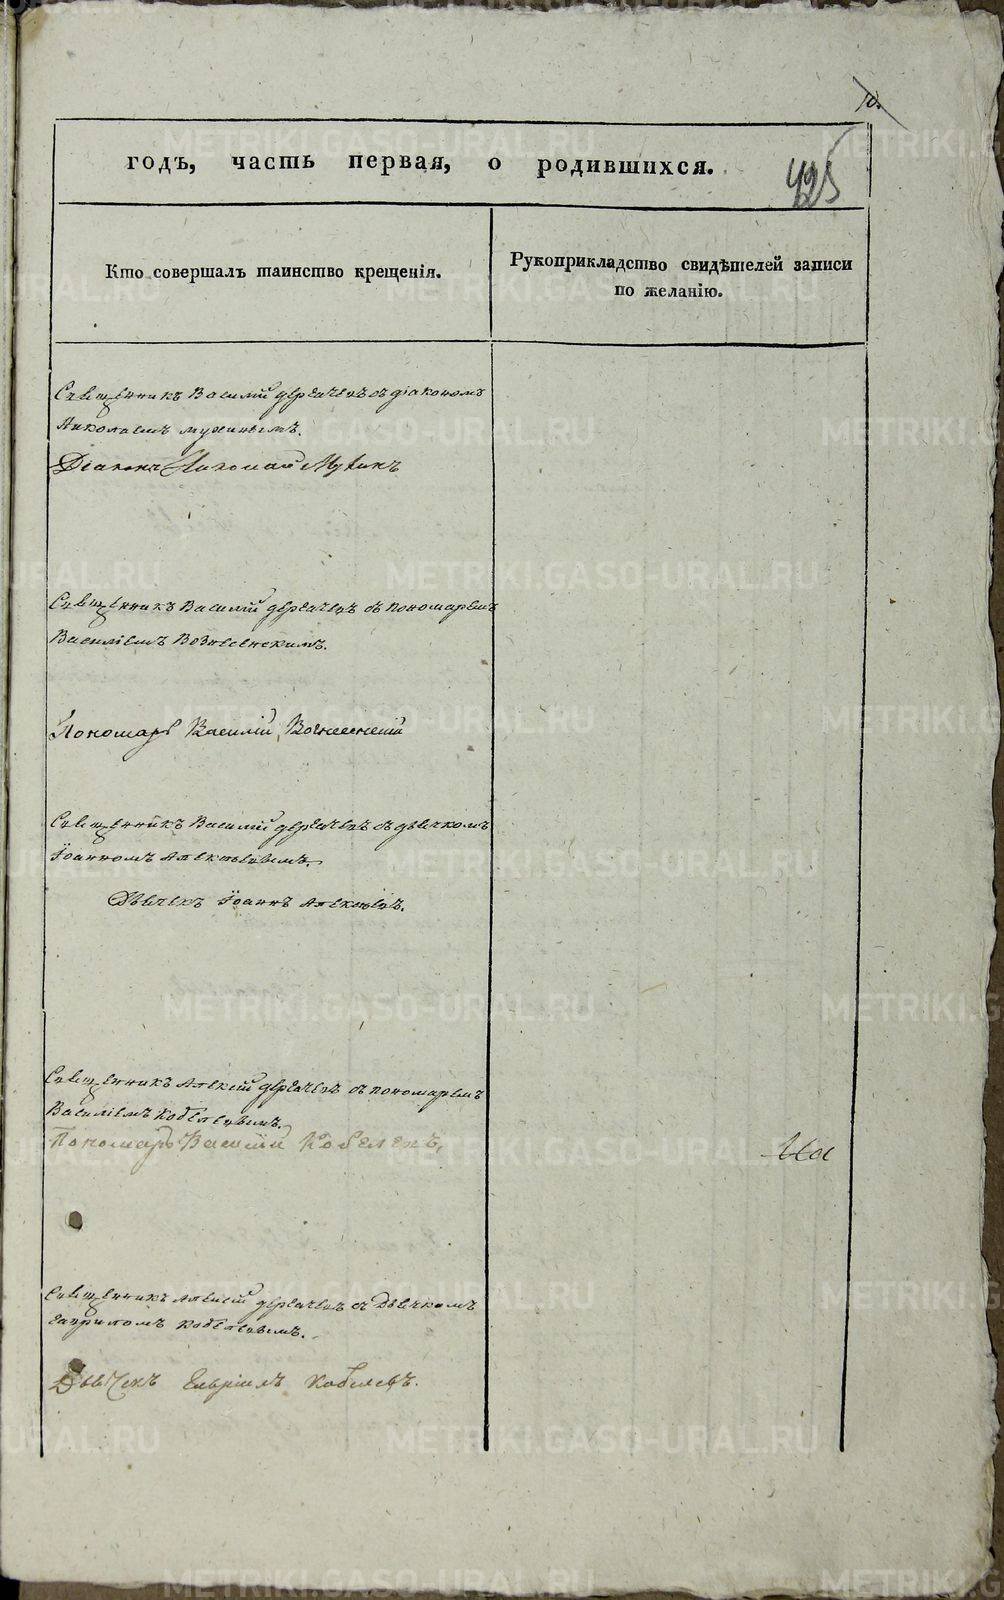 10.
годъ, часть первая, о родившихся.
425
Кто совершалъ таинство крещенія.
Рукоприкладство свидѣтелей записи
по желанію.
Священникъ Василій съ діакономъ
Николаемъ Мухинымъ.
Діаконъ Николай Мухинъ
Священникъ Василій съ пономаремъ
Василіемъ Вознесенскимъ.
Пономарь Василій Вознесенскій
Священникъ Василій съ дьячкомъ
Іоанномъ Алексѣевымъ.
Дьячекъ Іоаннъ Алексѣевъ.
Священникъ Алексій съ пономаремъ
Василіемъ Кобелевымъ.
Пономарь Василій Кобелевъ,
Священникъ Алексій съ Дьячкомъ
Гавриломъ Кобелевымъ.
Дьячекъ Гавріилъ Кобелевъ.
METRIKI.GASO-URAL.RU